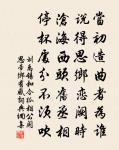 當初造曲者為誰
說得思鄉戀闕時
滄海西頭舊丞相
停杯處分不須吹
劉禹錫和令狐相公聞
思帝鄉有感詞典網集